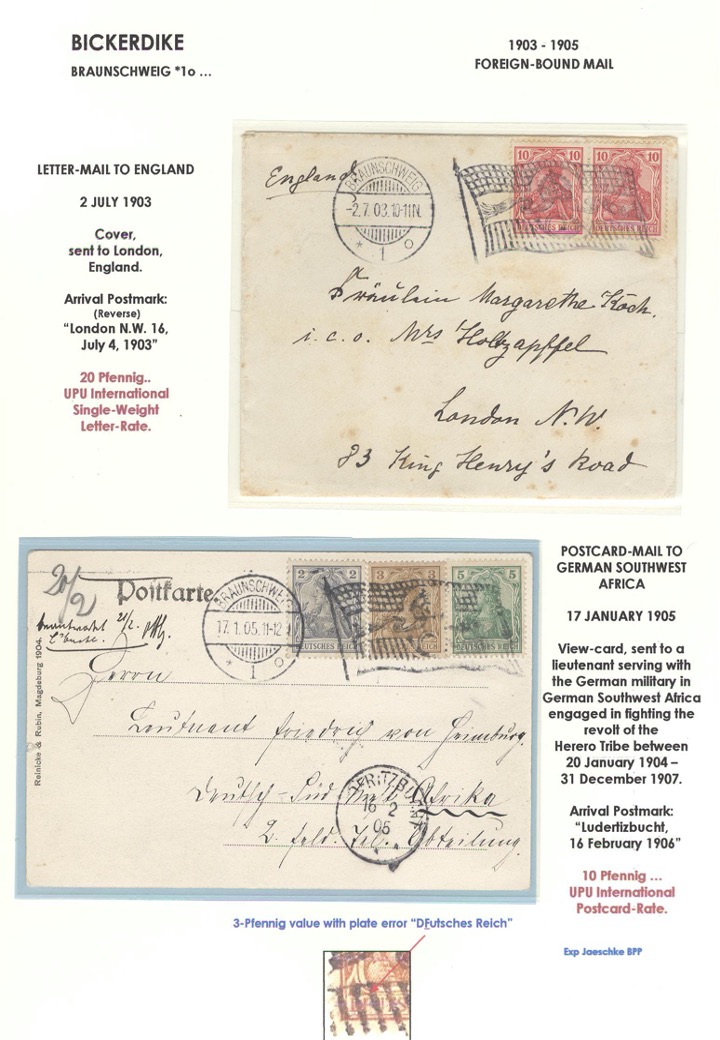 BICKERDIKE
BRAUNSCHWEIG *1o ...
1903 - 1905
FOREIGN-BOUND MAIL
LETTER-MAIL TO ENGLAND
2 JULY 1903
Cover,
sent to London,
England.
Arrival Postmark:
(Reverse)
"London N.W. 16,
July 4, 1903"
20 Pfennig..
UPU International
Single-Weight
Letter-Rate.
England
BRAUNSCHWEIG
-2.7.03.10-11N.
* 1 o
10 10
DEUTSCHES REICH
10 10
DEUTSCHES REICH
Fräulein Margarethe Koch.
i. c. o. Mrs Holtzapffel
London N.W.
83 King Henry's Road
POSTCARD-MAIL TO
GERMAN SOUTHWEST
AFRICA
17 JANUARY 1905
View-card, sent to a
lieutenant serving with
the German military in
German Southwest Africa
engaged in fighting the
revolt of the
Herero Tribe between
20 January 1904 –
31 December 1907.
Arrival Postmark:
"Ludertizbucht,
16 February 1906"
10 Pfennig ...
UPU International
Postcard-Rate.
Exp Jaeschke BPP
20/2
Postkarte
BRAUNSCHWEIG
17.1.05.11-12
* 1 o
2 2
DEUTSCHES REICH
3 3
REICH
5 5
DEUTSCHES REICH
Reinicke & Rubin, Magdeburg 1904.
Herrn
Leutnant Friedrich von
Deutsch-Süd West Afrika
16 2
05
2. Feld. Abteilung.
3-Pfennig value with plate error "DEutsches Reich"